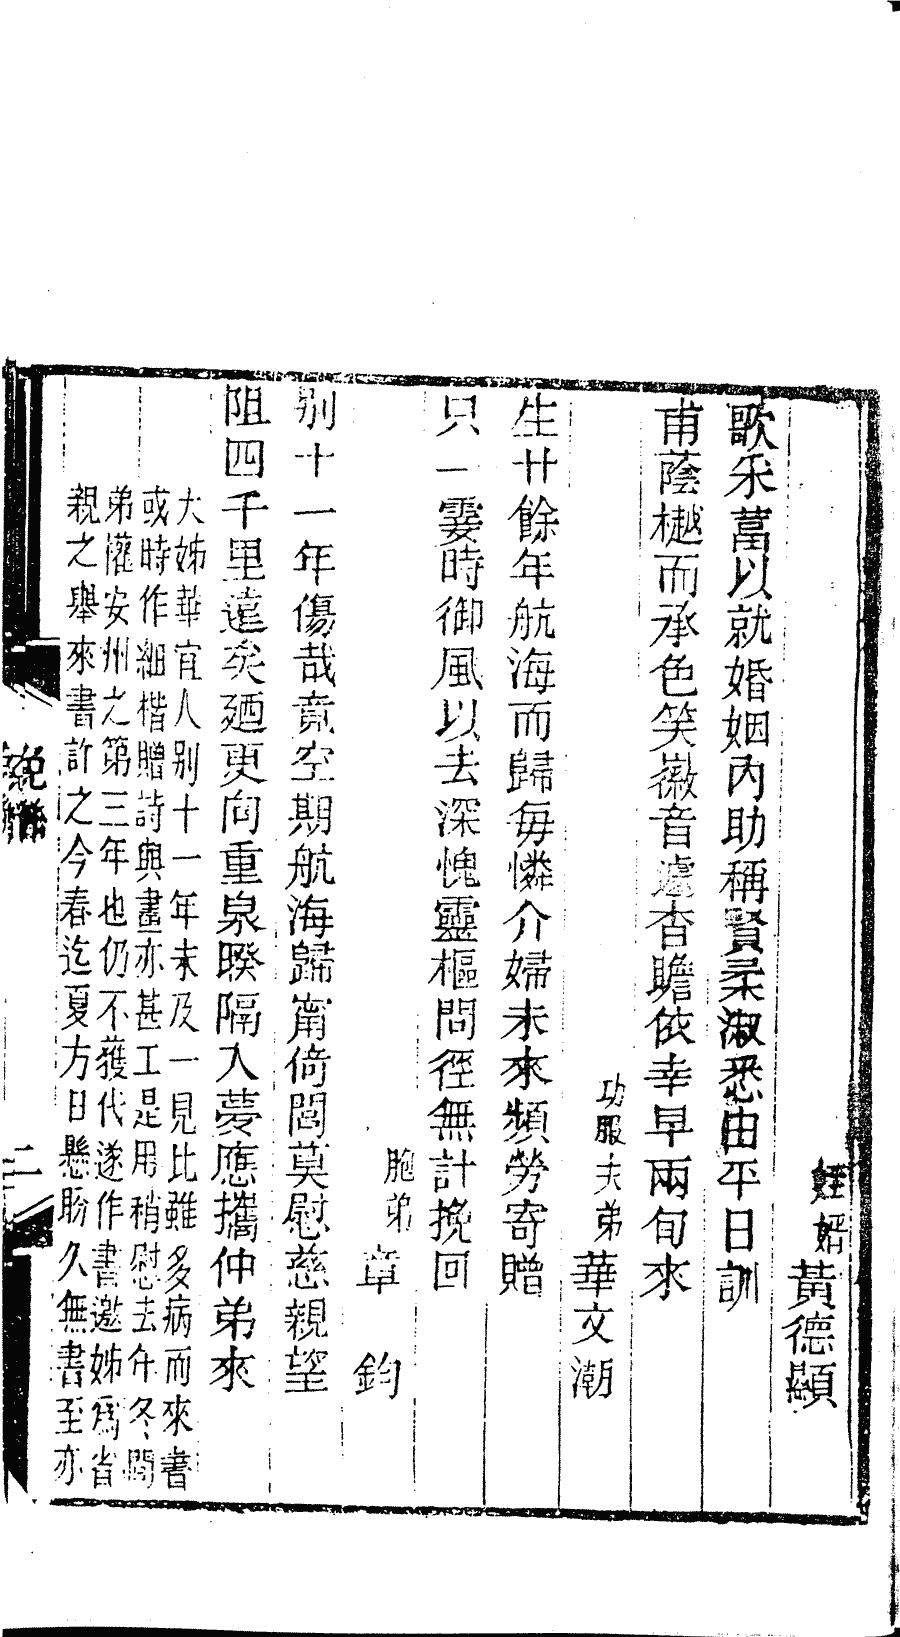 姪婿黃德顯
歌采葍以就婚姻內助稱賢柔淑悉由平日訓
甫蔭樾而承色笑徽音遽杳瞻依幸早兩旬來
功服夫弟華文潮
生廿餘年航海而歸每憐介婦未來頻勞寄贈
只一霎時御風以去深愧靈樞問徑無計挽回
胞弟章鈞
別十一年傷哉竟空期航海歸甯倚閭莫慰慈親望
阻四千里遠矣廼更向重泉暌隔入夢應攜仲弟來
大姊華宜人別十一年未及一見比雖多病而來書
或時作細楷贈詩與畫亦甚工是用稍慰去年冬間
弟權安州之第三年也仍不獲代遂作書邀姊爲省
親之舉來書許之今春迄夏方日懸盼久無書至亦
挽聯
二